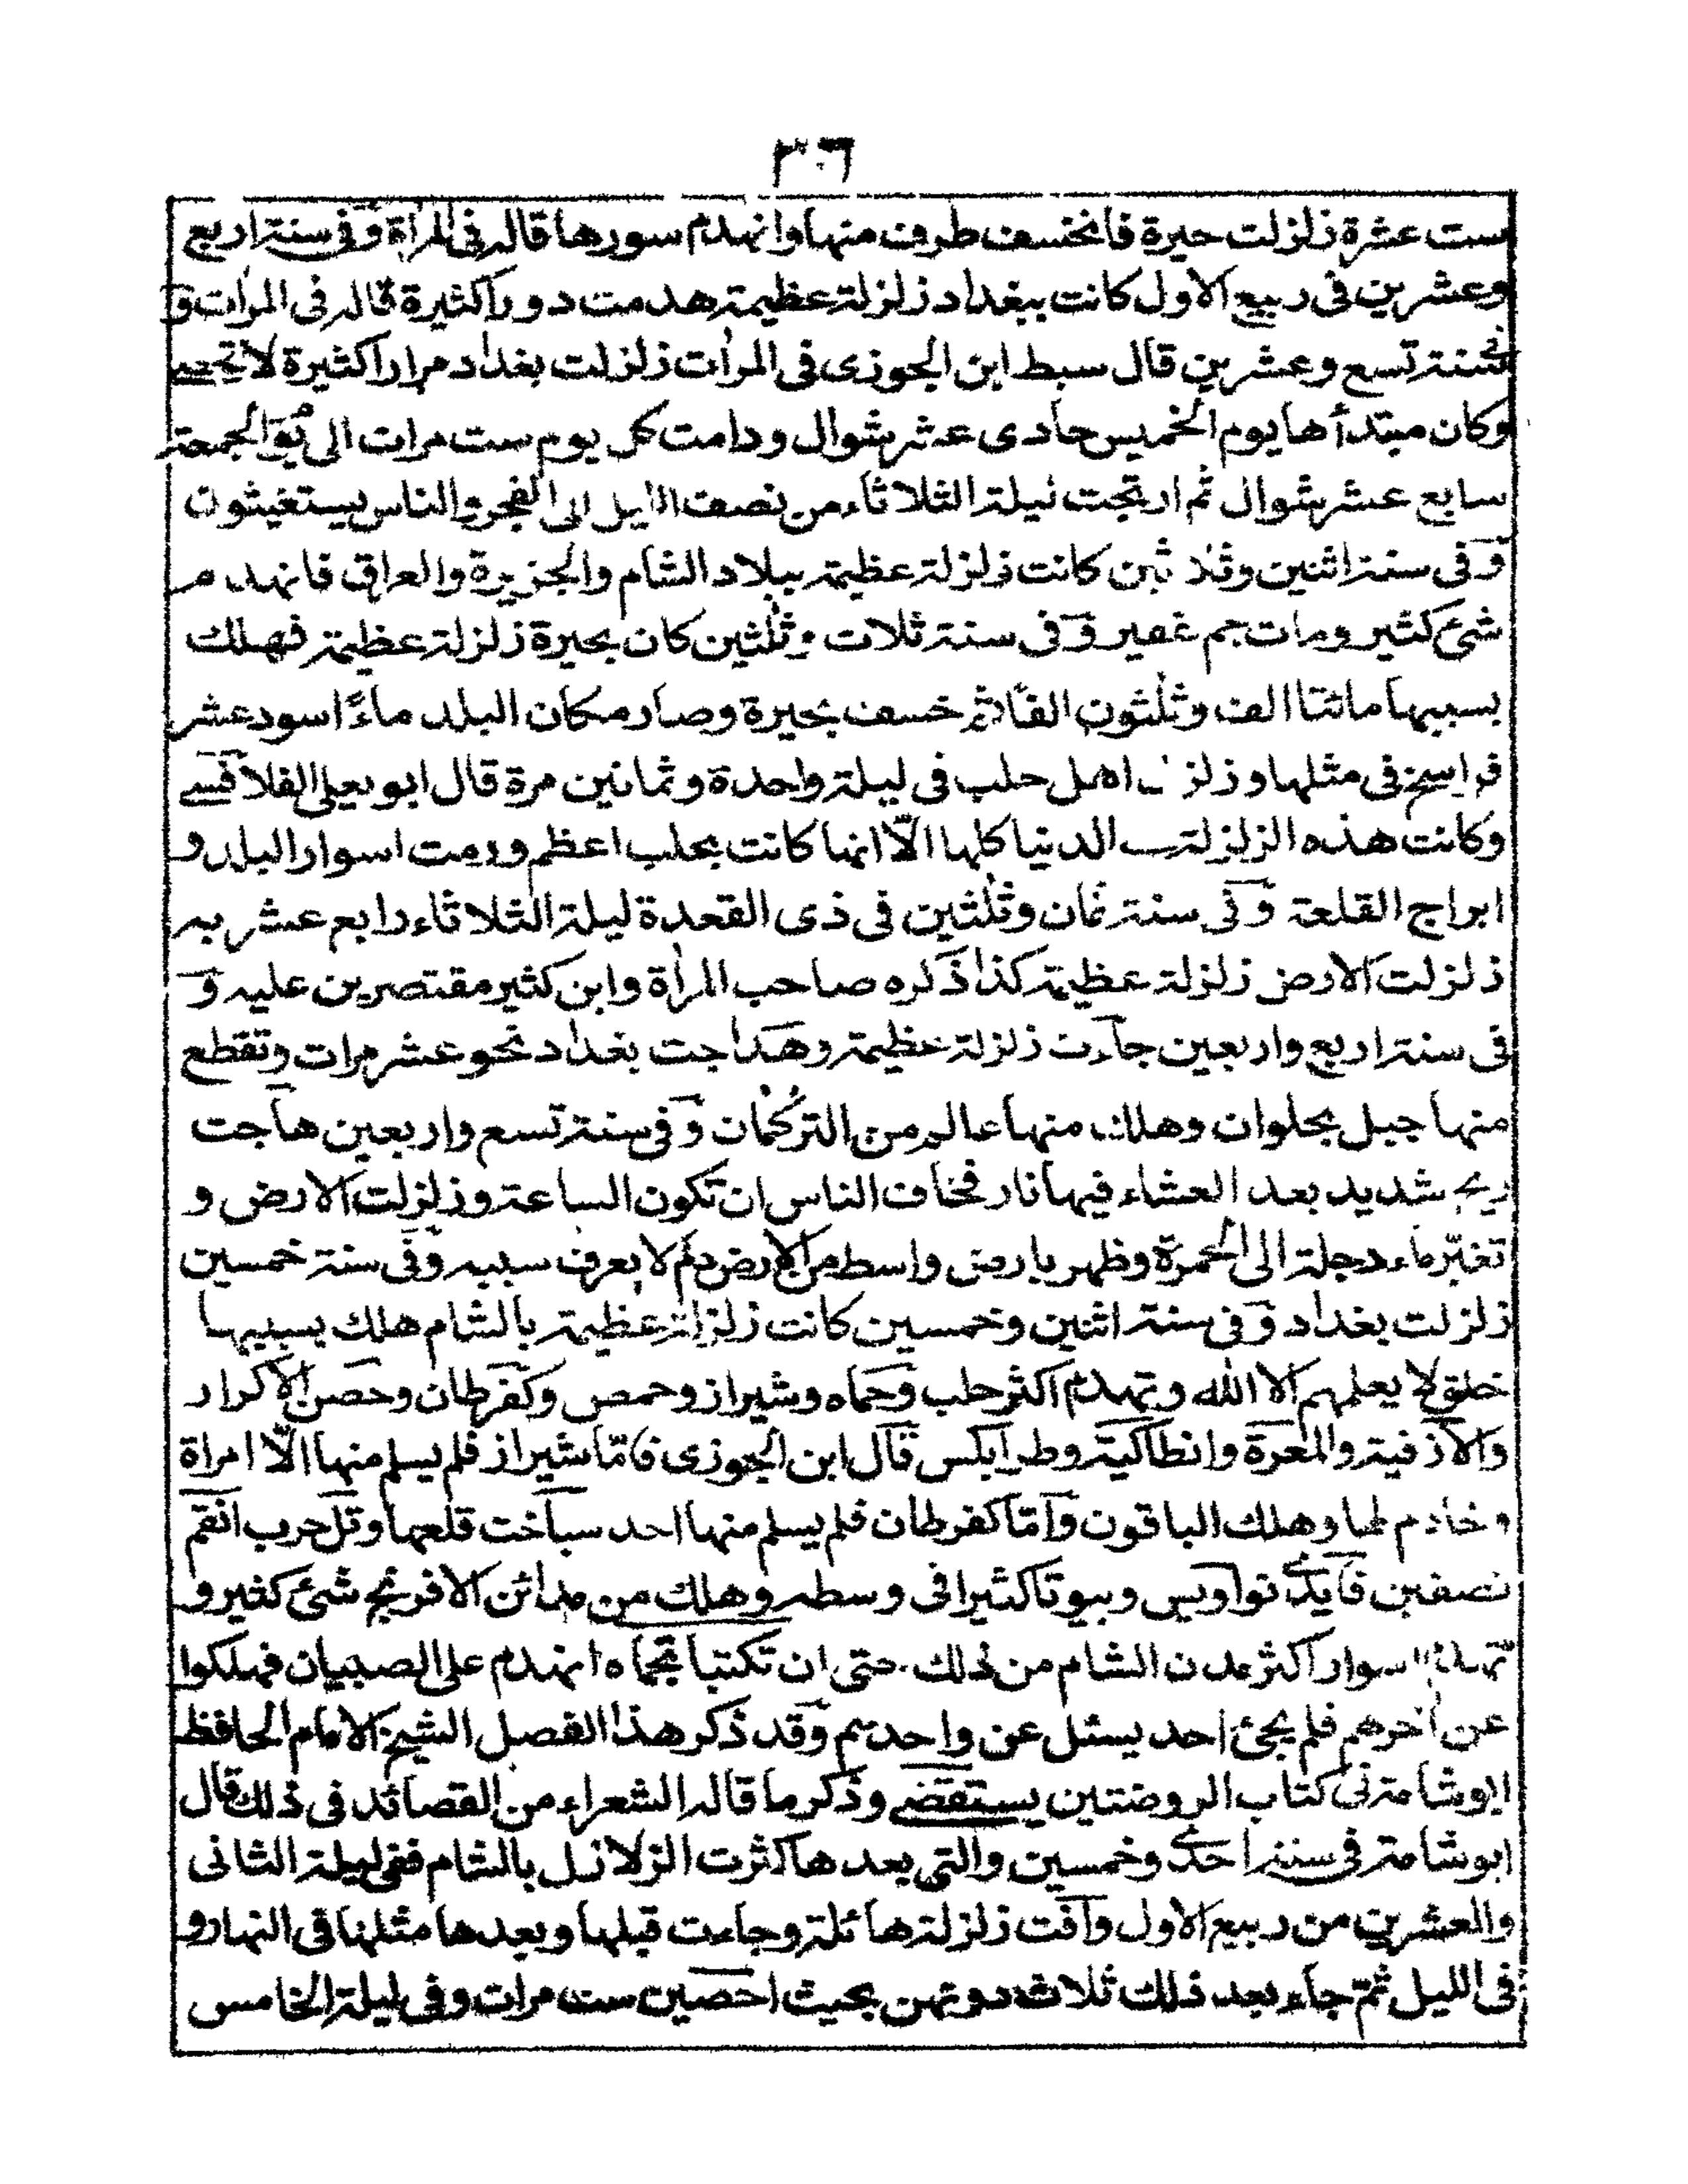 ٣٠٦
ست عشرة زلزلت حيرة فانخسف طرف منها وانهدم سورها قاله فى المرأة وفى سنة اربع
وعشرين فى ربيع الاول كانت ببغداد زلزلة عظيمة هدمت دوراكثيرة قاله فى المرات و
فى سنة تسع وعشرين قال سبط ابن الجوزى فى المرات زلزلت بغداد مراراكثيرة لا تحصى
وكان مبتدأها يوم الخميس حادى عشر شوال ودامت كل يوم ست مرات الى يوم الجمعة
سابع عشر شوال ثم ارتجت ليلة الثلاثاء من نصف الليل الى الفجر والناس يستغيثون
وفى سنة اثنين وثلاثين كانت زلزلة عظيمة ببلاد الشام والجزيرة والعراق فانهدم
شئ كثير ومات جم غفير وفى سنة ثلاث وثلثين كان بحيرة زلزلة عظيمة فهلك
بسببها مائتا الف وثلثون الفا ثم خسف بحيرة وصار مكان البلد ماءً اسود عشر
فراسخ فى مثلها وزلز اهل حلب فى ليلة واحدة وثمانين مرة قال ابو يعلى الفلاقسى
وكانت هذه الزلزلة الدنيا كلها الّا انها كانت بحلب اعظم ورمت اسوار البلد و
ابراج القلعة وفى سنة ثمان وثلثين فى ذى القعدة ليلة الثلاثاء رابع عشر به
زلزلت الارض زلزلة عظيمة كذا ذكره صاحب المرأة وابن كثير مقتصرين عليه و
فى سنة اربع واربعين جاءت زلزلة عظيمة وهداجت بغداد نحو عشر مرات وتقطع
منها جبل بحلوان وهلك منها عالم من التركمان وفى سنة تسع واربعين هاجت
ريح شديد بعد العشاء فيها نار فخاف الناس ان تكون الساعة وزلزلت الارض و
تغيّر ماء دجلة الى الحمرة وظهر بارض واسط من الارض دم لا يعرف سببه وفى سنة خمسين
زلزلت بغداد وفى سنة اثنين وخمسين كانت زلزلة عظيمة بالشام هلك بسببها
خلق لا يعلمهم الا الله وتهدم اكثر حلب وحماه وشيراز وحمص وكفرطان وحصن الاكرار
والآزفية والمعرة وانطاكية وطرابكس قال ابن الجوزى فامّا شيراز فلم يسلم منها الّا امراة
وخادم لها وهلك الباقون وامّا كفرطان فلم يسلم منها احد سباخت قلعها وتل حرب انقم
نصفين فابدى نواويس وبيوتا كثيرا فى وسطه وهلك من مدائن الافرنج شئ كثير و
تهدم اسوار اكثر مدن الشام من ذلك حتى ان تكتبا بحماه انهدم على الصبيان فهلكوا
عن آخرهم فلم يجئ احد يسئل عن واحد وقد ذكر هذا الفصل الشيخ الامام الحافظ
ابوشامة فى كتاب الروضتين يستقضى وذكر ما قاله الشعراء من القصائد فى ذلك قال
ابوشامة فى سنة احدى وخمسين والتى بعدها كثرت الزلازل بالشام ففى ليلة الثانى
والعشرين من ربيع الاول وافت زلزلة هائلة وجاءت قبلها وبعدها مثلها فى النهار و
فى الليل ثمّ جاء بعد ذلك ثلاث دونهن بحيث احصين ست مرات وفى ليلة الخامس